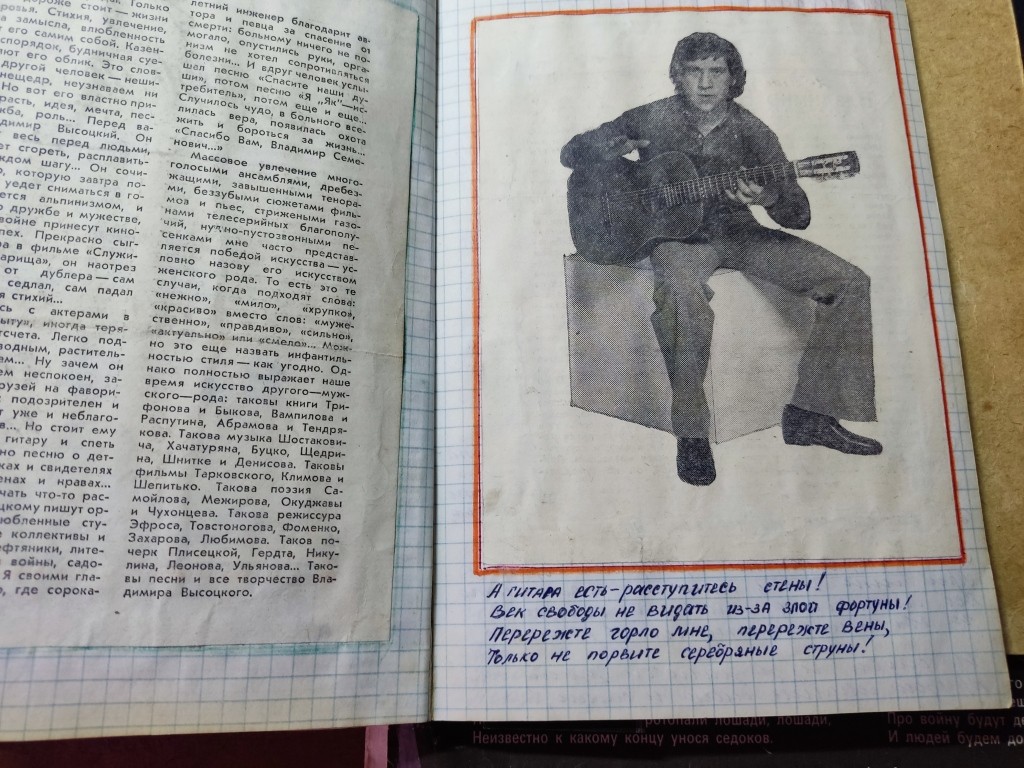 дороже стоит — жизни
Стихия, увлечение,
замысла, влюбленность
его самим собой. Казен-
спорядок, будничная суе-
ют его облик. Это слов-
другой человек — неши-
нещедр, неузнаваем ни
Но вот его властно при-
расть, идея, мечта, пес-
жба, роль... Перед ва-
димир Высоцкий. Он
весь перед людьми,
ет сгореть, расплавить-
ждом шагу... Он сочи-
о, которую завтра по-
уедет сниматься в го-
ется альпинизмом, и
о дружбе и мужестве,
войне принесут кино-
пех. Прекрасно сыг-
ра в фильме «Служи-
арища», он наотрез
от дублера — сам
седлал, сам падал
я стихий...
сь с актерами в
ыту», иногда теря-
тсчета. Легко под-
водным, раститель-
ам... Ну зачем он
ем неспокоен, за-
рузей на фавори-
подозрителен и
т уже и неблаго-
в... Но стоит ему
гитару и спеть
но песню о дет-
ках и свидетелях
енах и нравах...
чать что-то рас-
цкому пишут ор-
юбленные сту-
е коллективы и
ефтяники, лите-
войны, садо-
Я своими гла-
о, где сорока-
летний инженер благодарит ав-
тора и певца за спасение от
смерти: больному ничего не по-
могало, опустились руки, орга-
низм не хотел сопротивляться
болезни... И вдруг человек услы-
шал песню «Спасите наши ду-
ши», потом песню «Я „Як“—ис-
требитель», потом еще и еще...
Случилось чудо, в больного все-
лилась вера, появилась охота
жить и бороться за жизнь...
«Спасибо Вам, Владимир Семе-
нович...»
Массовое увлечение много-
голосыми ансамблями, дребез-
жащими, завышенными тенора-
ми, беззубыми сюжетами филь-
мов и пьес, стрижеными газо-
нами телесерийных благополу-
чий, нудно-пустозвонными пе-
сенками мне часто представ-
ляется победой искусства — ус-
ловно назову его искусством
женского рода. То есть это те
случаи, когда подходят слова:
«нежно», «мило», «хрупко»,
«красиво» вместо слов: «муже-
ственно», «правдиво», «сильно»,
«актуально» или «смело»... Мож-
но это еще назвать инфантиль-
ностью стиля — как угодно. Од-
нако полностью выражает наше
время искусство другого—муж-
ского—рода: таковы книги Три-
фонова и Быкова, Вампилова и
Распутина, Абрамова и Тендря-
кова. Такова музыка Шостакови-
ча, Хачатуряна, Буцко, Щедри-
на, Шнитке и Денисова. Таковы
фильмы Тарковского, Климова и
Шепитько. Такова поэзия Са-
мойлова, Межирова, Окуджавы
и Чухонцева. Такова режиссура
Эфроса, Товстоногова, Фоменко,
Захарова, Любимова. Таков по-
черк Плисецкой, Гердта, Нику-
лина, Леонова, Ульянова... Тако-
вы песни и все творчество Вла-
димира Высоцкого.
А гитара есть - расступитесь стены!
Век свободы не видать из-за злой фортуны!
Перережте горло мне, перережте вены,
Только не порвите серебряные струны!
ротопали лошади, лошади,
Неизвестно к какому концу унося седоков.
Про войну будут
И людей будем